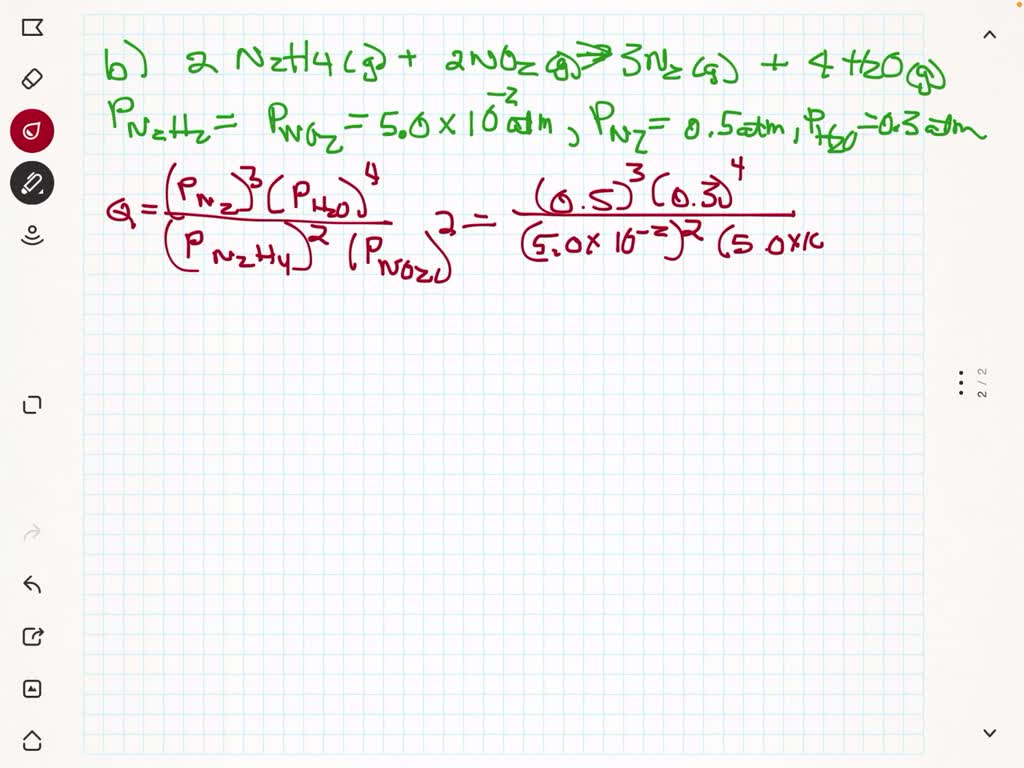 b) 2 N₂H4(g) + 2NO₂(g) → 3N₂(g) + 4 H₂O(g)
P_N₂H₂ = P_NO₂ = 5.0 × 10⁻² atm, P_N₂ = 0.5 atm, P_H₂O = 0.3 atm
Q = (P_N₂)³ (P_H₂O)⁴ / (P_N₂H₄)² (P_NO₂)² = (0.5)³ (0.3)⁴ / (5.0 × 10⁻²)² (5.0×10
2 / 2